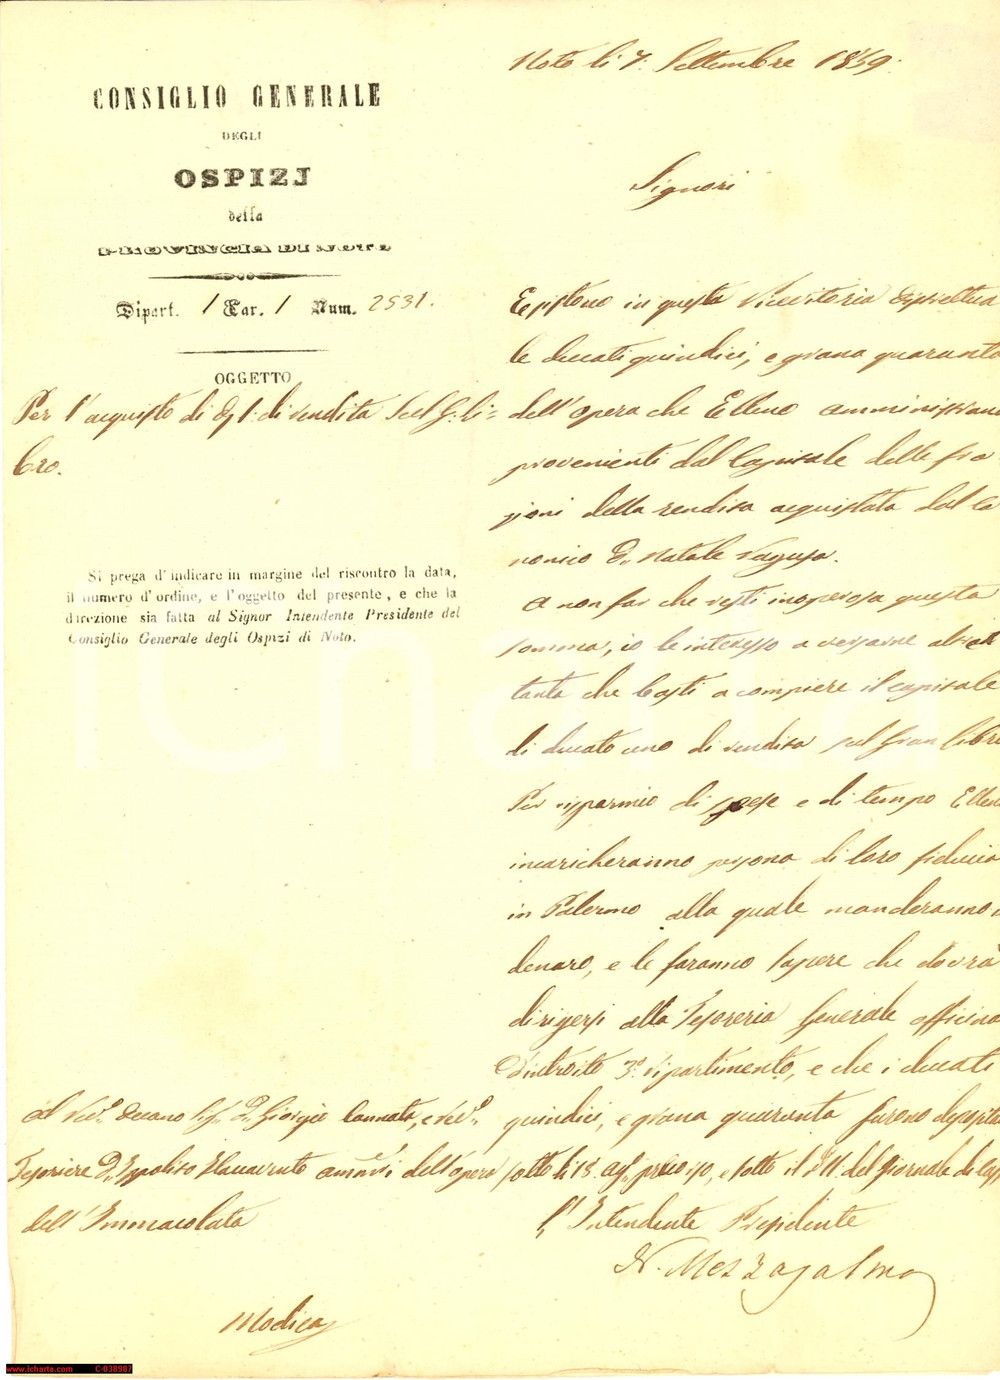 CONSIGLIO GENERALE
DEGLI
OSPIZJ
della
PROVINCIA DI NOTO
Dipart. 1 Car. 1 Num. 2531.
OGGETTO
Per l'acquisto di D. 1. di rendita sul G. li=
bro.
Si prega d'indicare in margine del riscontro la data,
il numero d'ordine, e l'oggetto del presente, e che la
direzione sia fatta al Signor Intendente Presidente del
Consiglio Generale degli Ospizi di Noto.
Al Rev.º Decano Sig. D. Giorgio Cannata, e Rev.º
Tesoriere D. Ippolito amm.ri dell'opera
dell'Immacolata
Modica
Noto li 7. Settembre 1859.
Signori
Esistono in questa Ricevitoria distrettua
le ducati quindici, e grana quaranta
dell'opera che Elleno amministrano
provenienti dal Capitale delle fra
zioni della rendita acquistata dal Ca
nonico D. Natale Ragusa.
A non far che resti inoperosa questa
somma, io le interesso a versarne altret
tanta che basti a compiere il capitale
di ducato uno di rendita sul Gran libro
Per risparmio di spese e di tempo Elleno
incaricheranno persona di loro fiducia
in Palermo alla quale manderanno il
denaro, e le faranno sapere che dovrà
dirigersi alla Tesoreria Generale officina
d'introito 3.º ripartimento, e che i ducati
quindici, e grana quaranta furono
sotto li 13. e sotto il del Giornale di
L'Intendente Presidente
N. Mezzasalma
www.icharta.com C-038987